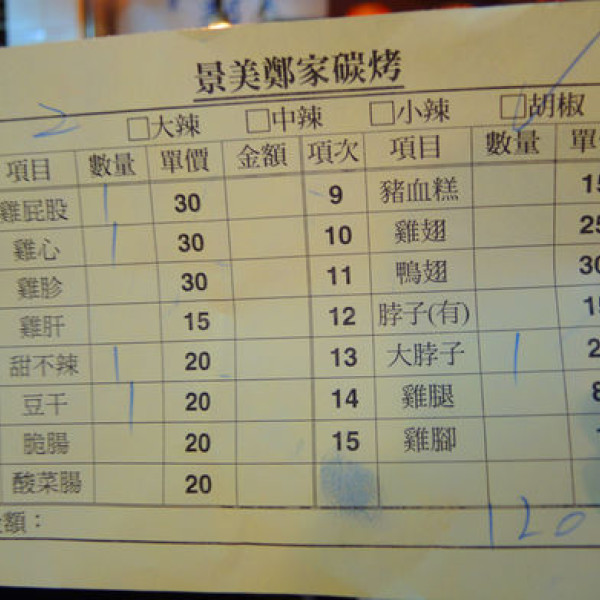 景美鄭家碳烤
2 □大辣 □中辣 □小辣 □胡椒
項目 數量 單價 金額 項次 項目 數量
雞屁股 1 30 9 豬血糕
雞心 1 30 10 雞翅
雞胗 30 11 鴨翅
雞肝 15 12 脖子(有)
甜不辣 1 20 13 大脖子 1
豆干 1 20 14 雞腿
脆腸 20 15 雞腳
酸菜腸 20
額： 120